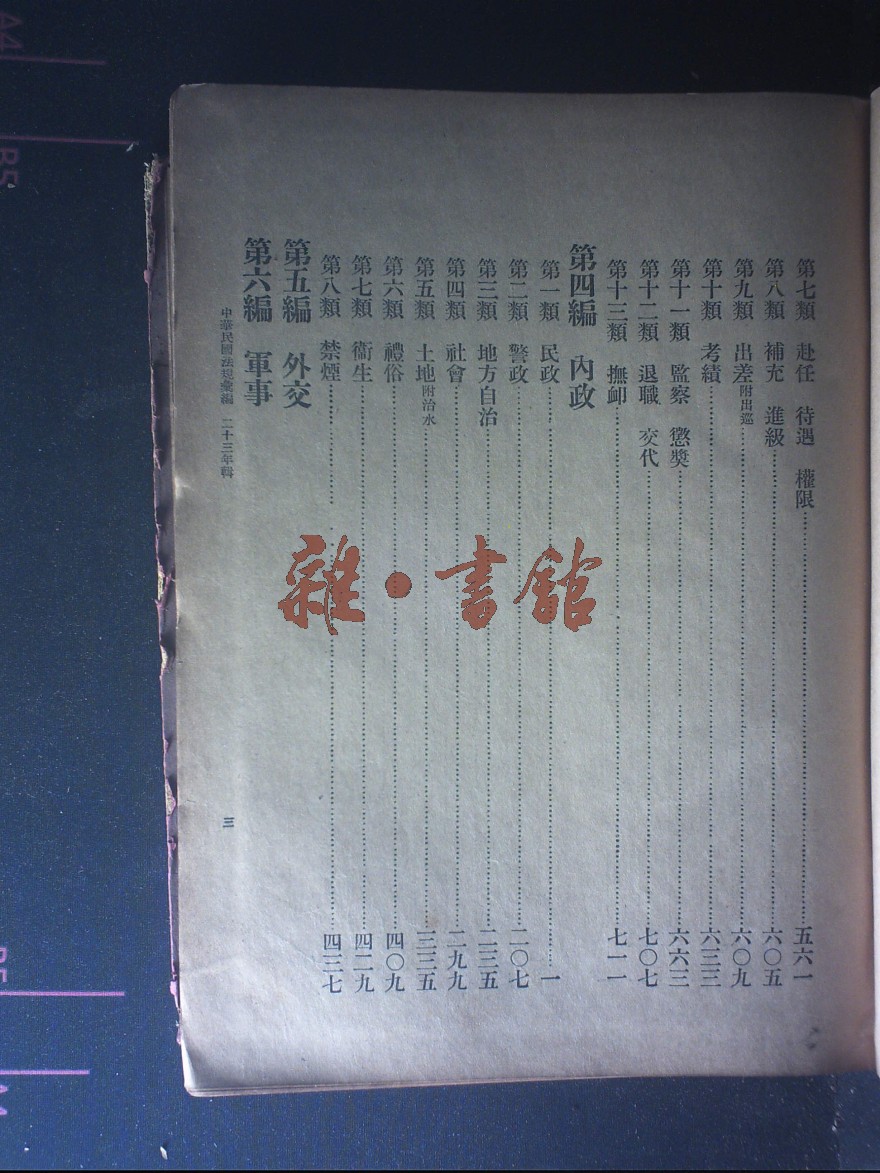 第七類 赴任 待遇 權限……五六一
第八類 補充 進級……六〇五
第九類 出差附出巡……六〇九
第十類 考績……六三三
第十一類 監察 懲獎……六六三
第十二類 退職 交代……七〇七
第十三類 撫卹……七一一
第四編 內政
第一類 民政……一
第二類 警政……二〇七
第三類 地方自治……二三五
第四類 社會……二九九
第五類 土地附治水……三三五
第六類 禮俗……四〇九
第七類 衞生……四二九
第八類 禁煙……四三七
第五編 外交
第六編 軍事
中華民國法規彙編 二十三年輯
三
雜·書館
A4
B5
B5
A4